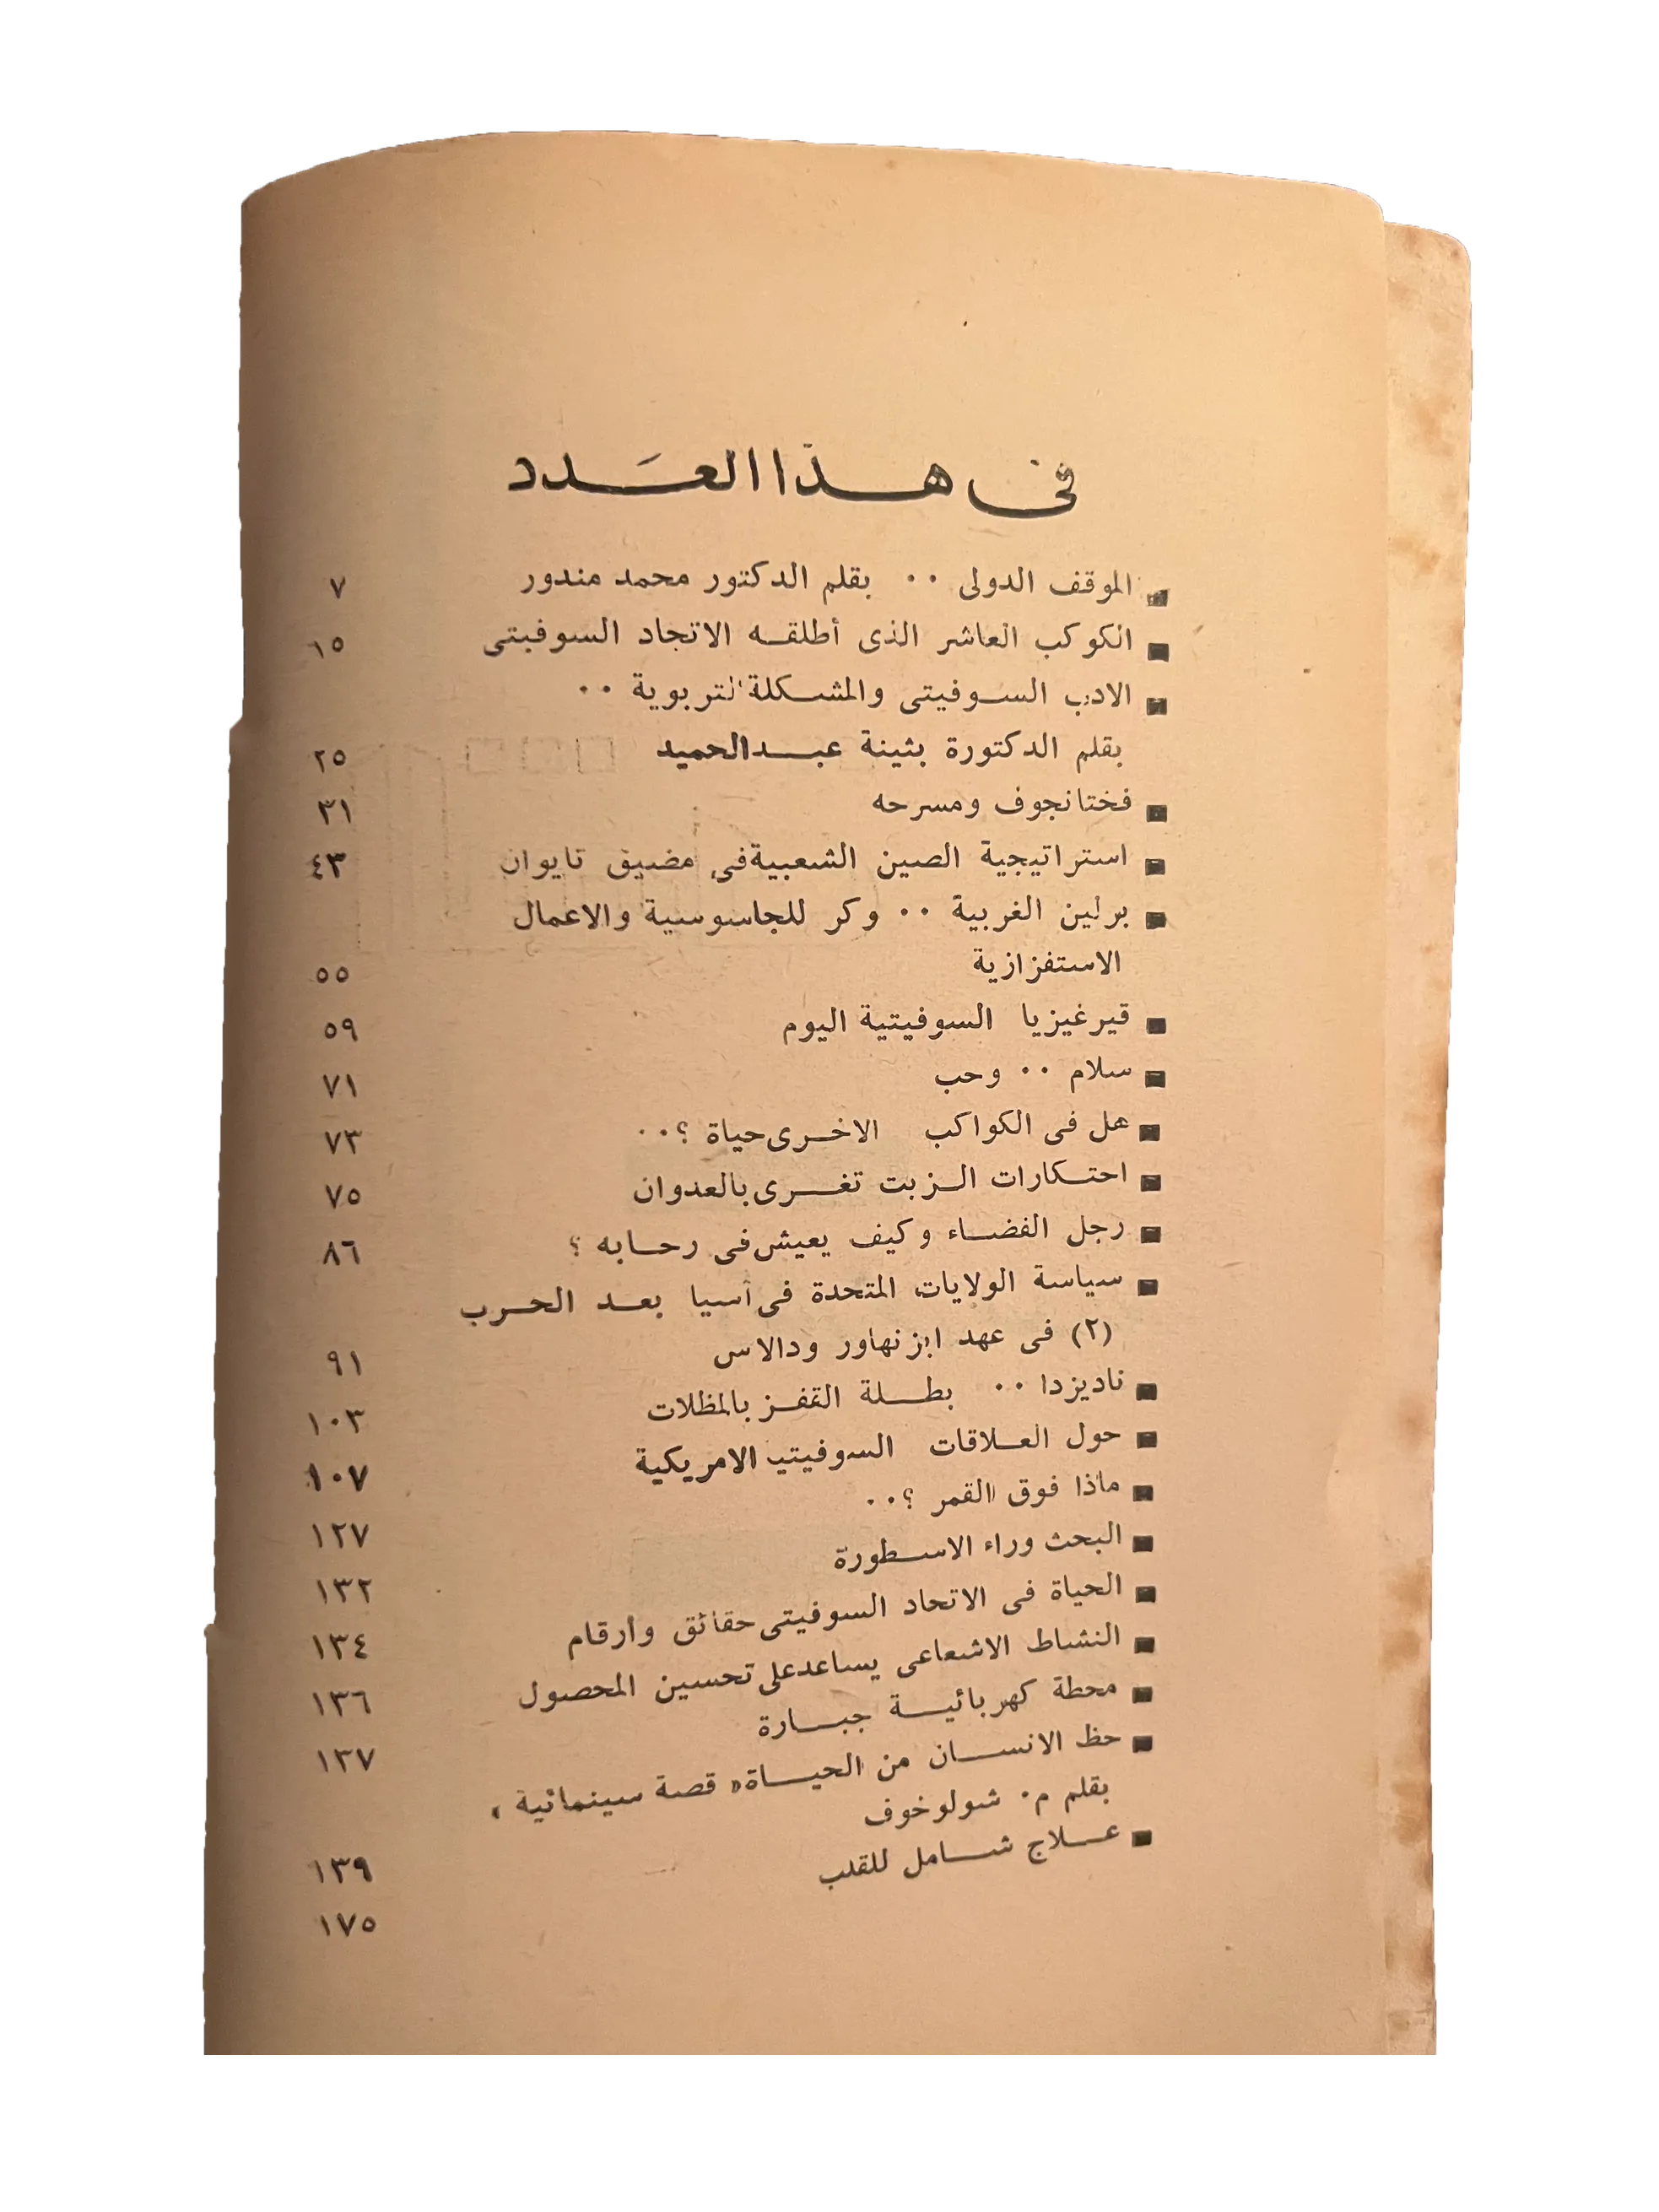 فى هذا العدد
الموقف الدولى ٠٠ بقلم الدكتور محمد مندور ٧
الكوكب العاشر الذى أطلقه الاتحاد السوفيتى ١٥
الادب السوفيتى والمشكلة التربوية ٠٠
بقلم الدكتورة بثينة عبدالحميد ٢٥
فختانجوف ومسرحه ٣١
استراتيجية الصين الشعبية فى مضيق تايوان ٤٣
برلين الغربية ٠٠ وكر للجاسوسية والاعمال
الاستفزازية ٥٥
قيرغيزيا السوفيتية اليوم ٥٩
سلام ٠٠ وحب ٧١
هل فى الكواكب الاخرى حياة ؟٠٠ ٧٣
احتكارات الزيت تغرى بالعدوان ٧٥
رجل الفضاء وكيف يعيش فى رحابه ؟ ٨٦
سياسة الولايات المتحدة فى آسيا بعد الحرب
(٢) فى عهد ايزنهاور ودالاس ٩١
ناديزدا ٠٠ بطلة القفز بالمظلات ١٠٣
حول العلاقات السوفيتية الامريكية ١٠٧
ماذا فوق القمر ؟٠٠ ١٢٧
البحث وراء الاسطورة ١٣٢
الحياة فى الاتحاد السوفيتى حقائق وأرقام ١٣٤
النشاط الاشعاعى يساعد على تحسين المحصول ١٣٦
محطة كهربائية جبارة ١٣٧
حظ الانسان من الحياة « قصة سينمائية »
بقلم م٠ شولوخوف ١٣٩
علاج شامل للقلب ١٧٥